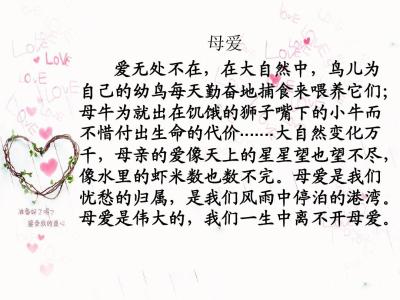 母爱
爱无处不在，在大自然中，鸟儿为
自己的幼鸟每天勤奋地捕食来喂养它们；
母牛为就出在饥饿的狮子嘴下的小牛而
不惜付出生命的代价.......大自然变化万
千，母亲的爱像天上的星星望也望不尽，
像水里的虾米数也数不完。母爱是我们
忧愁的归属，是我们风雨中停泊的港湾。
母爱是伟大的，我们一生中离不开母爱。
LOVE
LOVE
LOVE
LOVE
准备好了吗?